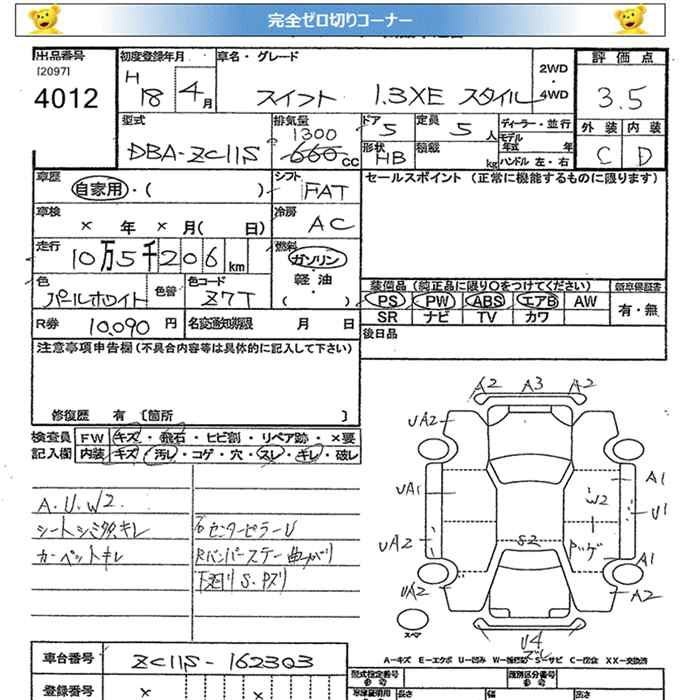 完全ゼロ切りコーナー
出品番号
[2097]
4012
初度登録年月
H 18 4 月
車名・グレード
スイフト 1.3XE スタイル
2WD
・
4WD
評価点
3.5
外装 内装
C D
型式
DBA-ZC11S
排気量
1300
660 cc
ドア 5
定員 5 人
形状 HB
積載 kg
ディーラー・並行
モデル
年式 年
ハンドル 左・右
車歴
自家用・( )
シフト
FAT
セールスポイント (正常に機能するものに限ります)
車検
× 年 × 月( 日)
冷房
AC
走行
10万5千206km
燃料
ガソリン
軽油
( )
色
パールホワイト
色替
色コード
Z7T
装備品 (純正品に限り○をつけてください)
PS PW ABS エアB AW
SR ナビ TV カワ
新車保証書
有・無
R券 10,090 円
名変通知期限 月 日
後日品
注意事項申告欄 (不具合内容等は具体的に記入して下さい)
修復歴 有 [箇所 ]
検査員
記入欄
FW キズ・飛石・ヒビ割・リペア跡・×要
内装 キズ・汚レ・コゲ・穴・スレ・キレ・破レ
A.U.W2
シートシミ
キレ
カーペットキレ
右センターピラーU
Rバンパーステー曲がり
下廻りS.Pズリ
A2 A3 A2
UA2
UA1
UA2
UA2
A1
W2
U1
S2
A1
A2
U4
ズレ
スペア
A-キズ E-エクボ U-凹み W-補修跡 S-サビ C-腐食 XX-交換済
車台番号
ZC11S-162303
型式指定番号
類別区分番号
登録番号
× ×
長さ 幅 高さ